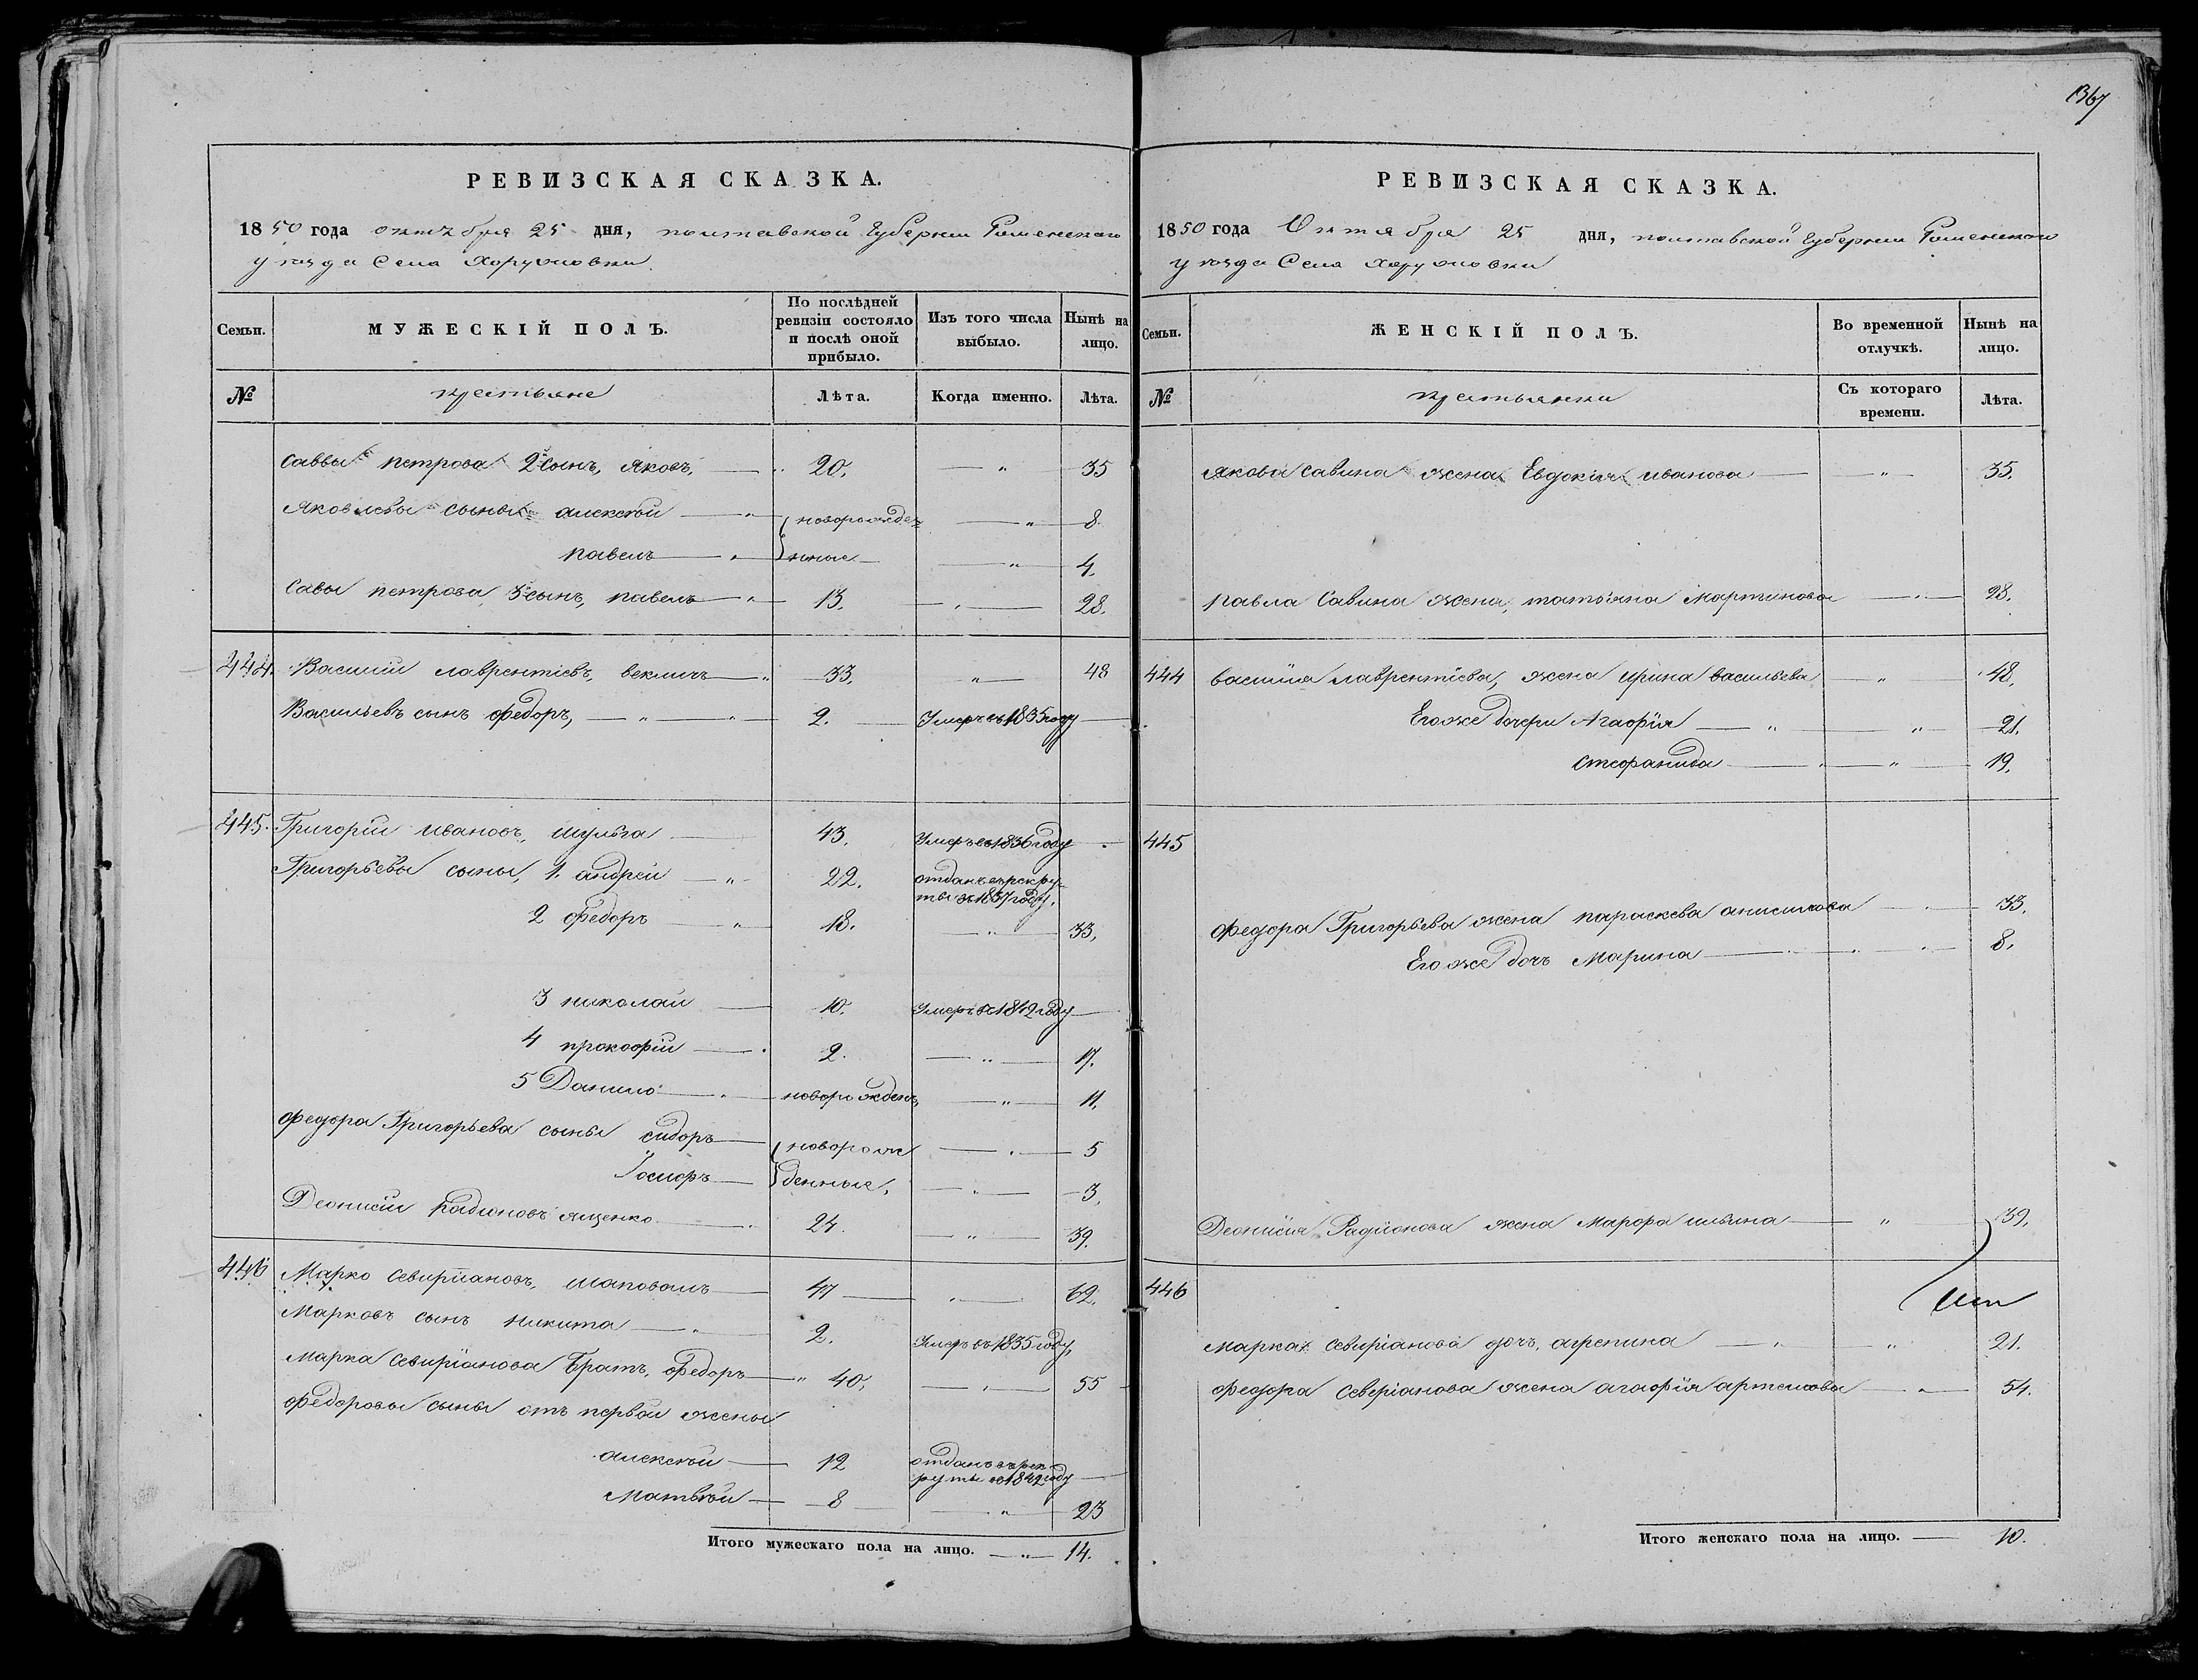 РЕВИЗСКАЯ СКАЗКА.
1850 года октября 25 дня, полтавской Губернии Роменского
уезда Села Хоруоновки
Семьи. МУЖЕСКІЙ ПОЛЪ. По послѣдней ревизіи состояло и послѣ оной прибыло. Изъ того числа выбыло. Нынѣ на лицо.
№ крестьяне Лѣта. Когда именно. Лѣта.
Саввы петрова 2й сынъ, яковъ, 20. " 35
Яковлевы сыны алексѣй новорожден " 8
павелъ ные " 4.
Савы петрова 3й сынъ, павелъ 13. " 28.
444. Василий лаврентіевъ, векличъ 33. " 48
Васильевъ сынъ Федоръ, 2. Умеръ въ 1835 году
445. Григорій ивановъ, шульга 43. Умеръ въ 1836 году
Григорьевы сыны, 1. андрей 22. отданъ въ рекру
ты въ 1837 году.
2 Федоръ 18. " 33.
3 николай 10. Умеръ въ 1842 году
4 прокофій 2. " 17.
5 Данило новорожденъ " 11.
Федора Григорьева сыны сидоръ новорож " 5
Іосифъ денные, " 3.
Деонисій Радионовъ ященко 24. " 39.
446 Марко севиріановъ, шаповалъ 47 " 62.
Марковъ сынъ никита 2. Умеръ въ 1835 году,
Марка севиріанова Братъ, Федоръ 40, " 55
Федоровы сыны отъ первой жены
алексѣй 12 отданъ въ рек
руты въ 1842 году
Матвѣй 8 " 23
Итого мужескаго пола на лицо. " 14.
1367
РЕВИЗСКАЯ СКАЗКА.
1850 года Октября 25 дня, полтавской Губернии Роменского
уезда Села Хоруоновки
Семьи. ЖЕНСКІЙ ПОЛЪ. Во временной отлучкѣ. Нынѣ на лицо.
№ крестьянки Съ котораго времени. Лѣта.
якова савина жена Евдокія иванова " 35.
павла Савина жена, татьяна Мартинова " 28.
444 василия лаврентіева, жена ирина васильева " 48.
Его же дочери Агафія " 21.
стефанида " 19.
445
Федора Григорьева жена параскева анисимова " 33.
Его же дочь Марина " 8.
Деонисія Радіонова жена Марфа ильина " 39.
446
марка севиріанова дочь, агрепина " 21.
Федора Северіанова жена агафія артемова " 54.
Итого женскаго пола на лицо. 10.